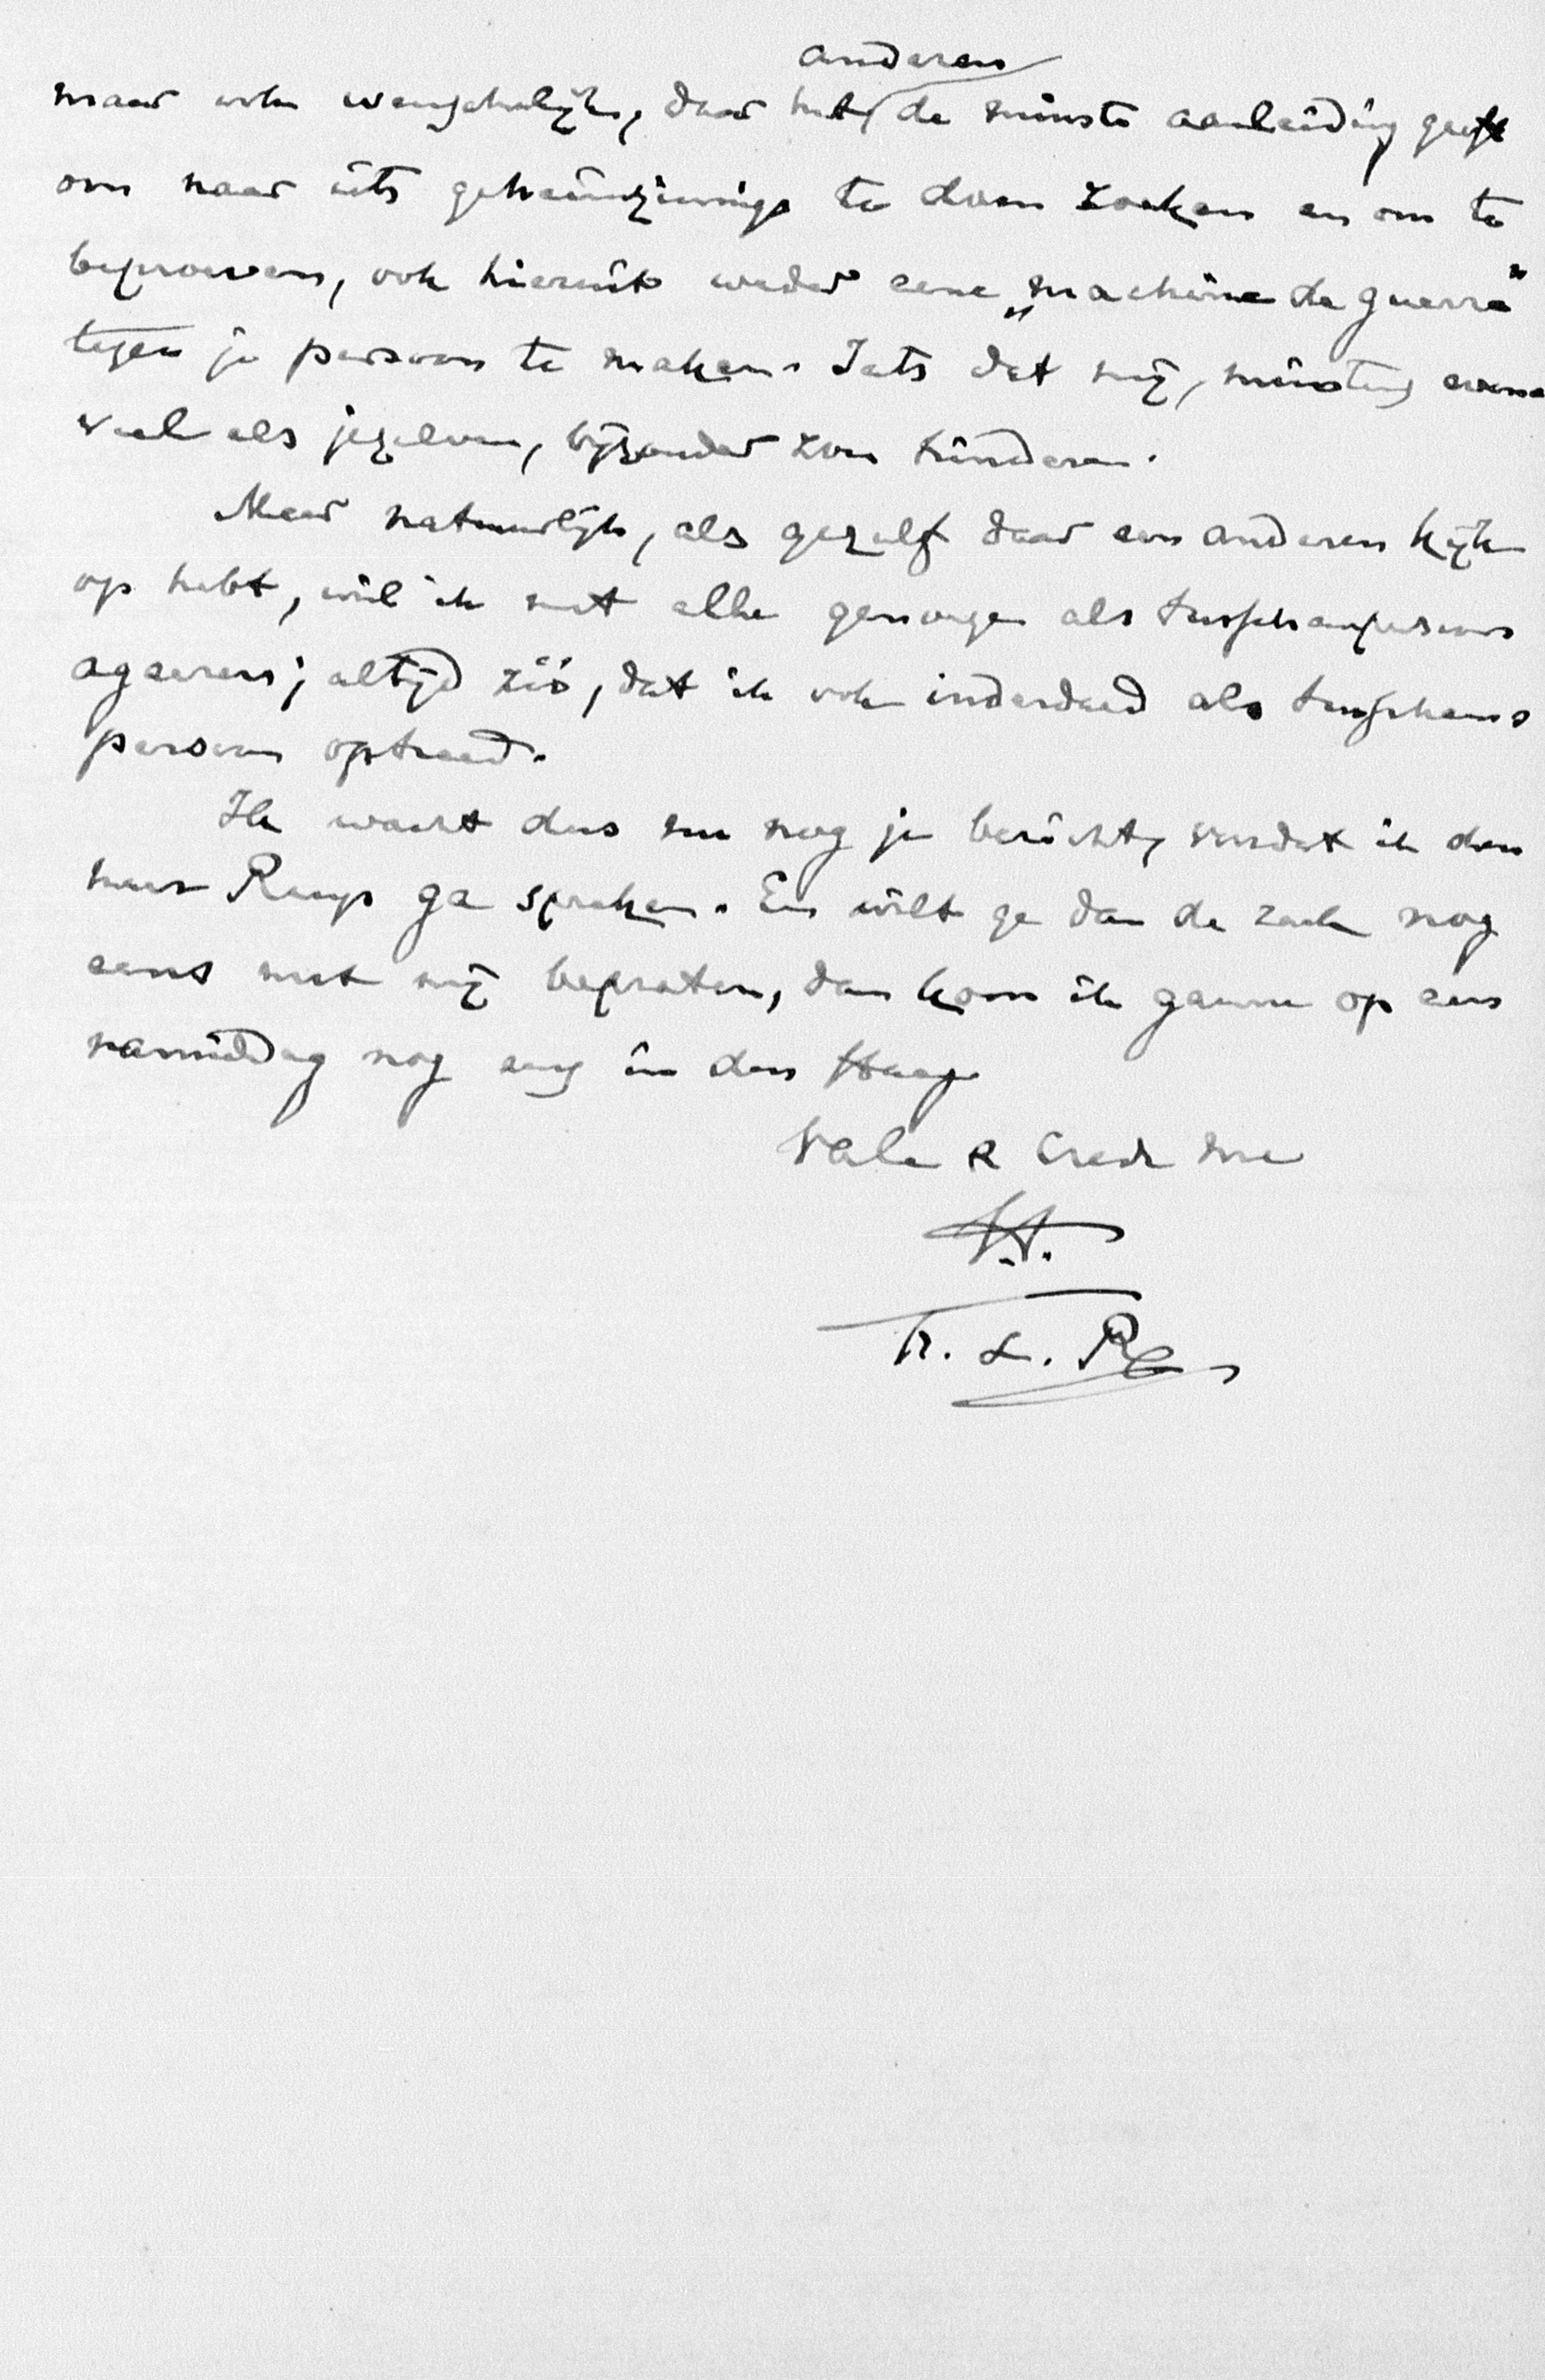 anderen
maar ook wenschelijk, daar het de minste aanleiding geeft
om naar iets geheimzinnigs te doen zoeken en om te
beproeven, ook hieruit weder eene „machine de guerre”
tegen je persoon te maken. Iets dat mij, minstens even
veel als jezelven, bijzonder zou hinderen.
Maar natuurlijk, als ge zelf daar een anderen kijk
op hebt, wil ik met alle genoegen als tusschenpersoon
ageeren; altijd zóó, dat ik ook inderdaad als tusschen
persoon optreed.
Ik wacht dus nu nog je bericht, voordat ik den
heer ga spreken. En wilt ge dan de zaak nog
eens met mij bepraten, dan kom ik gaarne op een
namiddag nog eens in den Haag
Vale & Crede me
tt.